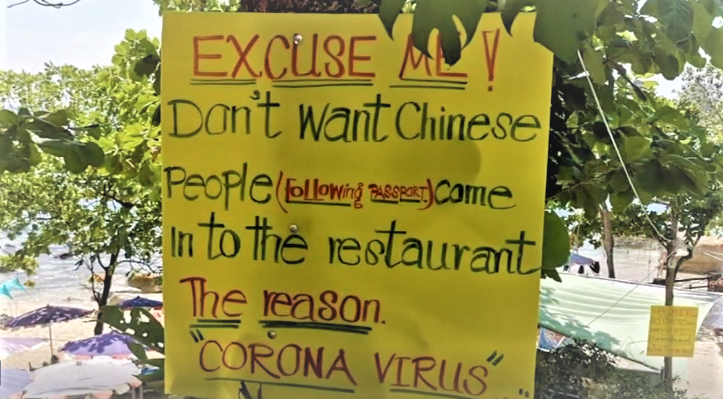 EXCUSE ME!
Don't want Chinese
People (Following PASSPORT) come
In to the restaurant
The reason.
"CORONA VIRUS"